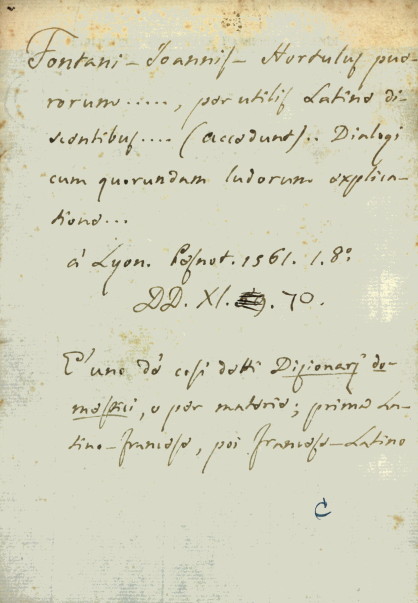 Fontani - Joannis - Hortulus pue-
rorum....., per utilis Latine di-
scentibus.... (accedunt).. Dialogi
cum quorundam ludorum explica-
tione...
á Lyon. 1561. 1. 8º
DD. XI. 70.
E' uno de' cosi detti Dizionarj do-
mestici, o per materie; prima La-
tino-francese, poi francese-Latino
C